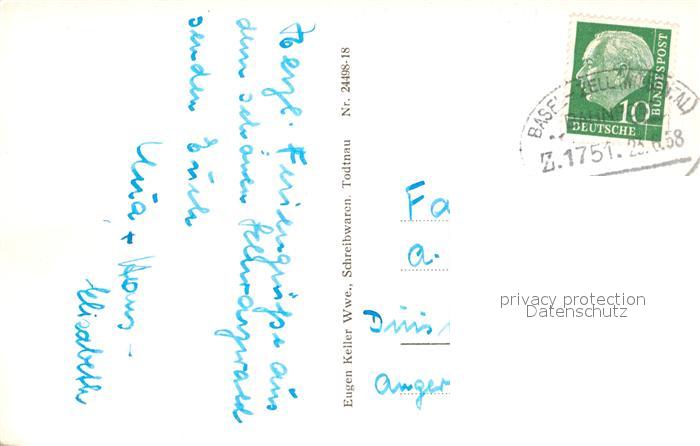 Herzl. Feriengrüße aus
dem schönen Schwarzwald
senden Euch
+ Hans -
Elisabeth
Eugen Keller Wwe., Schreibwaren, Todtnau Nr. 24498-18
10
DEUTSCHE
BUNDESPOST
BASEL - ZELL (WIESENTAL)
Z.1751. 58
Fa
a.
Duis
anger
privacy protection
Datenschutz